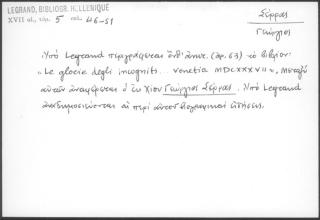 LEGRAND, BIBLIOGR. HELLENIQUE
XVII al., τόμ. 5 σελ. 46-51
Σύρρας
Γεώργιος
Ὑπὸ Legrand περιγράφεται ὑπ' ἀριθ. (ἀρ. 63) τὸ βιβλίον:
"Le glorie degli incogniti... Venetia MDCXXXVII", Μεταξὺ
αὐτῶν ἀναφέρεται ὁ ἐκ Χίου Γεώργιος Σύρρας. Ὑπὸ Legrand
ἀναδημοσιεύονται αἱ περὶ αὐτοῦ βιογραφικαὶ εἰδήσεις.